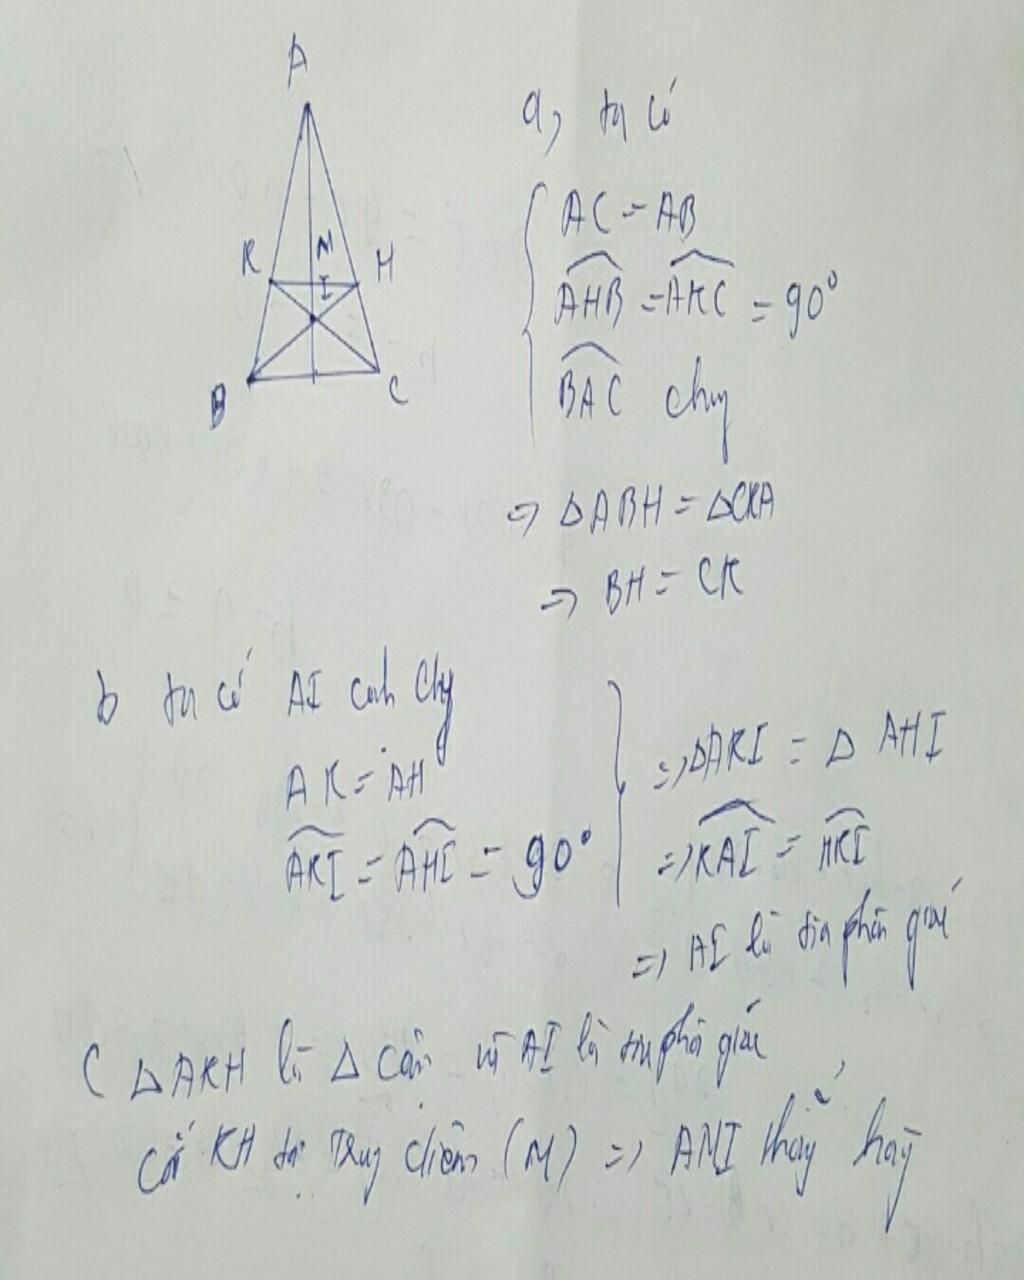 A
K M H
I
B C
a, ta có
AC = AB
AHB = AKC = 90°
BAC chug
=> ΔABH = ΔCKA
=> BH = CK
b ta có AI cạnh chg
AK = AH
AKI = AHI = 90°
=> ΔAKI = Δ AHI
=> KAI = HKI
=> AI là tia phân giác
C ΔAKH là Δ cân vì AI là tia phân giác
cắt KH tại Trug điểm (M) => AMI thẳg hàg